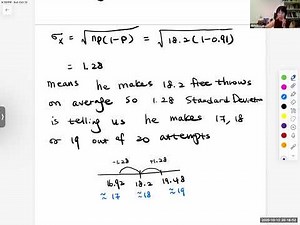 σx = √np(1-p) = √18.2(1-0.91)
= 1.28
means he makes 18.2 free throws
on average so 1.28 Standard Deviation
is telling us he makes 17, 18
or 19 out of 20 attempts
-1.28 +1.28
16.92 18.2 19.48
≈ 17 ≈18 ≈ 19